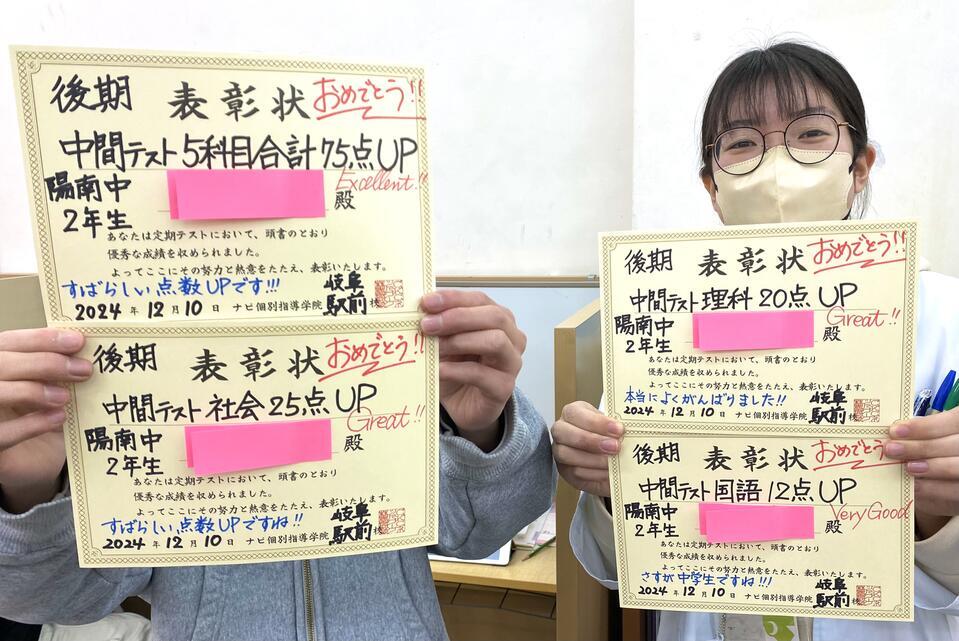 後期 表彰状 おめでとう!!
中間テスト 5科目合計 75点 UP
Excellent!!
陽南中
2年生
殿
あなたは定期テストにおいて、頭書のとおり
優秀な成績を収められました。
よってここにその努力と熱意をたたえ、表彰いたします。
すばらしい点数UPです!!!
2024年12月10日 ナビ個別指導学院 岐阜駅前校
後期 表彰状 おめでとう!!
中間テスト 社会 25点 UP
Great!!
陽南中
2年生
殿
あなたは定期テストにおいて、頭書のとおり
優秀な成績を収められました。
よってここにその努力と熱意をたたえ、表彰いたします。
すばらしい点数UPですね!!
2024年12月10日 ナビ個別指導学院 岐阜駅前校
後期 表彰状 おめでとう!!
中間テスト 理科 20点 UP
Great!!
陽南中
2年生
殿
あなたは定期テストにおいて、頭書のとおり
優秀な成績を収められました。
よってここにその努力と熱意をたたえ、表彰いたします。
本当によくがんばりました!!
2024年12月10日 ナビ個別指導学院 岐阜駅前校
後期 表彰状 おめでとう!!
中間テスト 国語 12点 UP
Very Good
陽南中
2年生
殿
あなたは定期テストにおいて、頭書のとおり
優秀な成績を収められました。
よってここにその努力と熱意をたたえ、表彰いたします。
さすが中学生ですね!!!
2024年12月10日 ナビ個別指導学院 岐阜駅前校